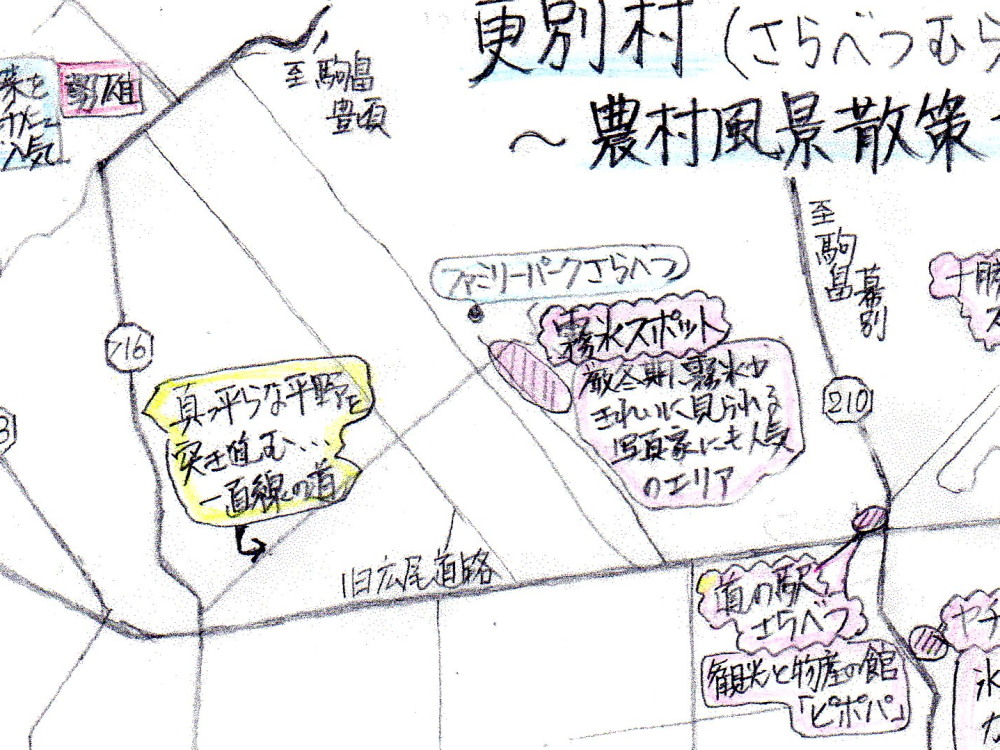 更別村 (さらべつむら
～農村風景散策
至駒畠
豊頃
菜を
人気
勢雄
ファミリーパークさらべつ
霧氷スポット
厳冬期に霧氷が
きれいに見られる
写真家にも人気
のエリア
至駒畠
幕別
十勝
ス
716
210
3
真っ平らな平野を
突き進む…
一直線の道
旧広尾道路
道の駅
さらべつ
観光と物産の館
「ピポパ」
ヤチ
氷
な